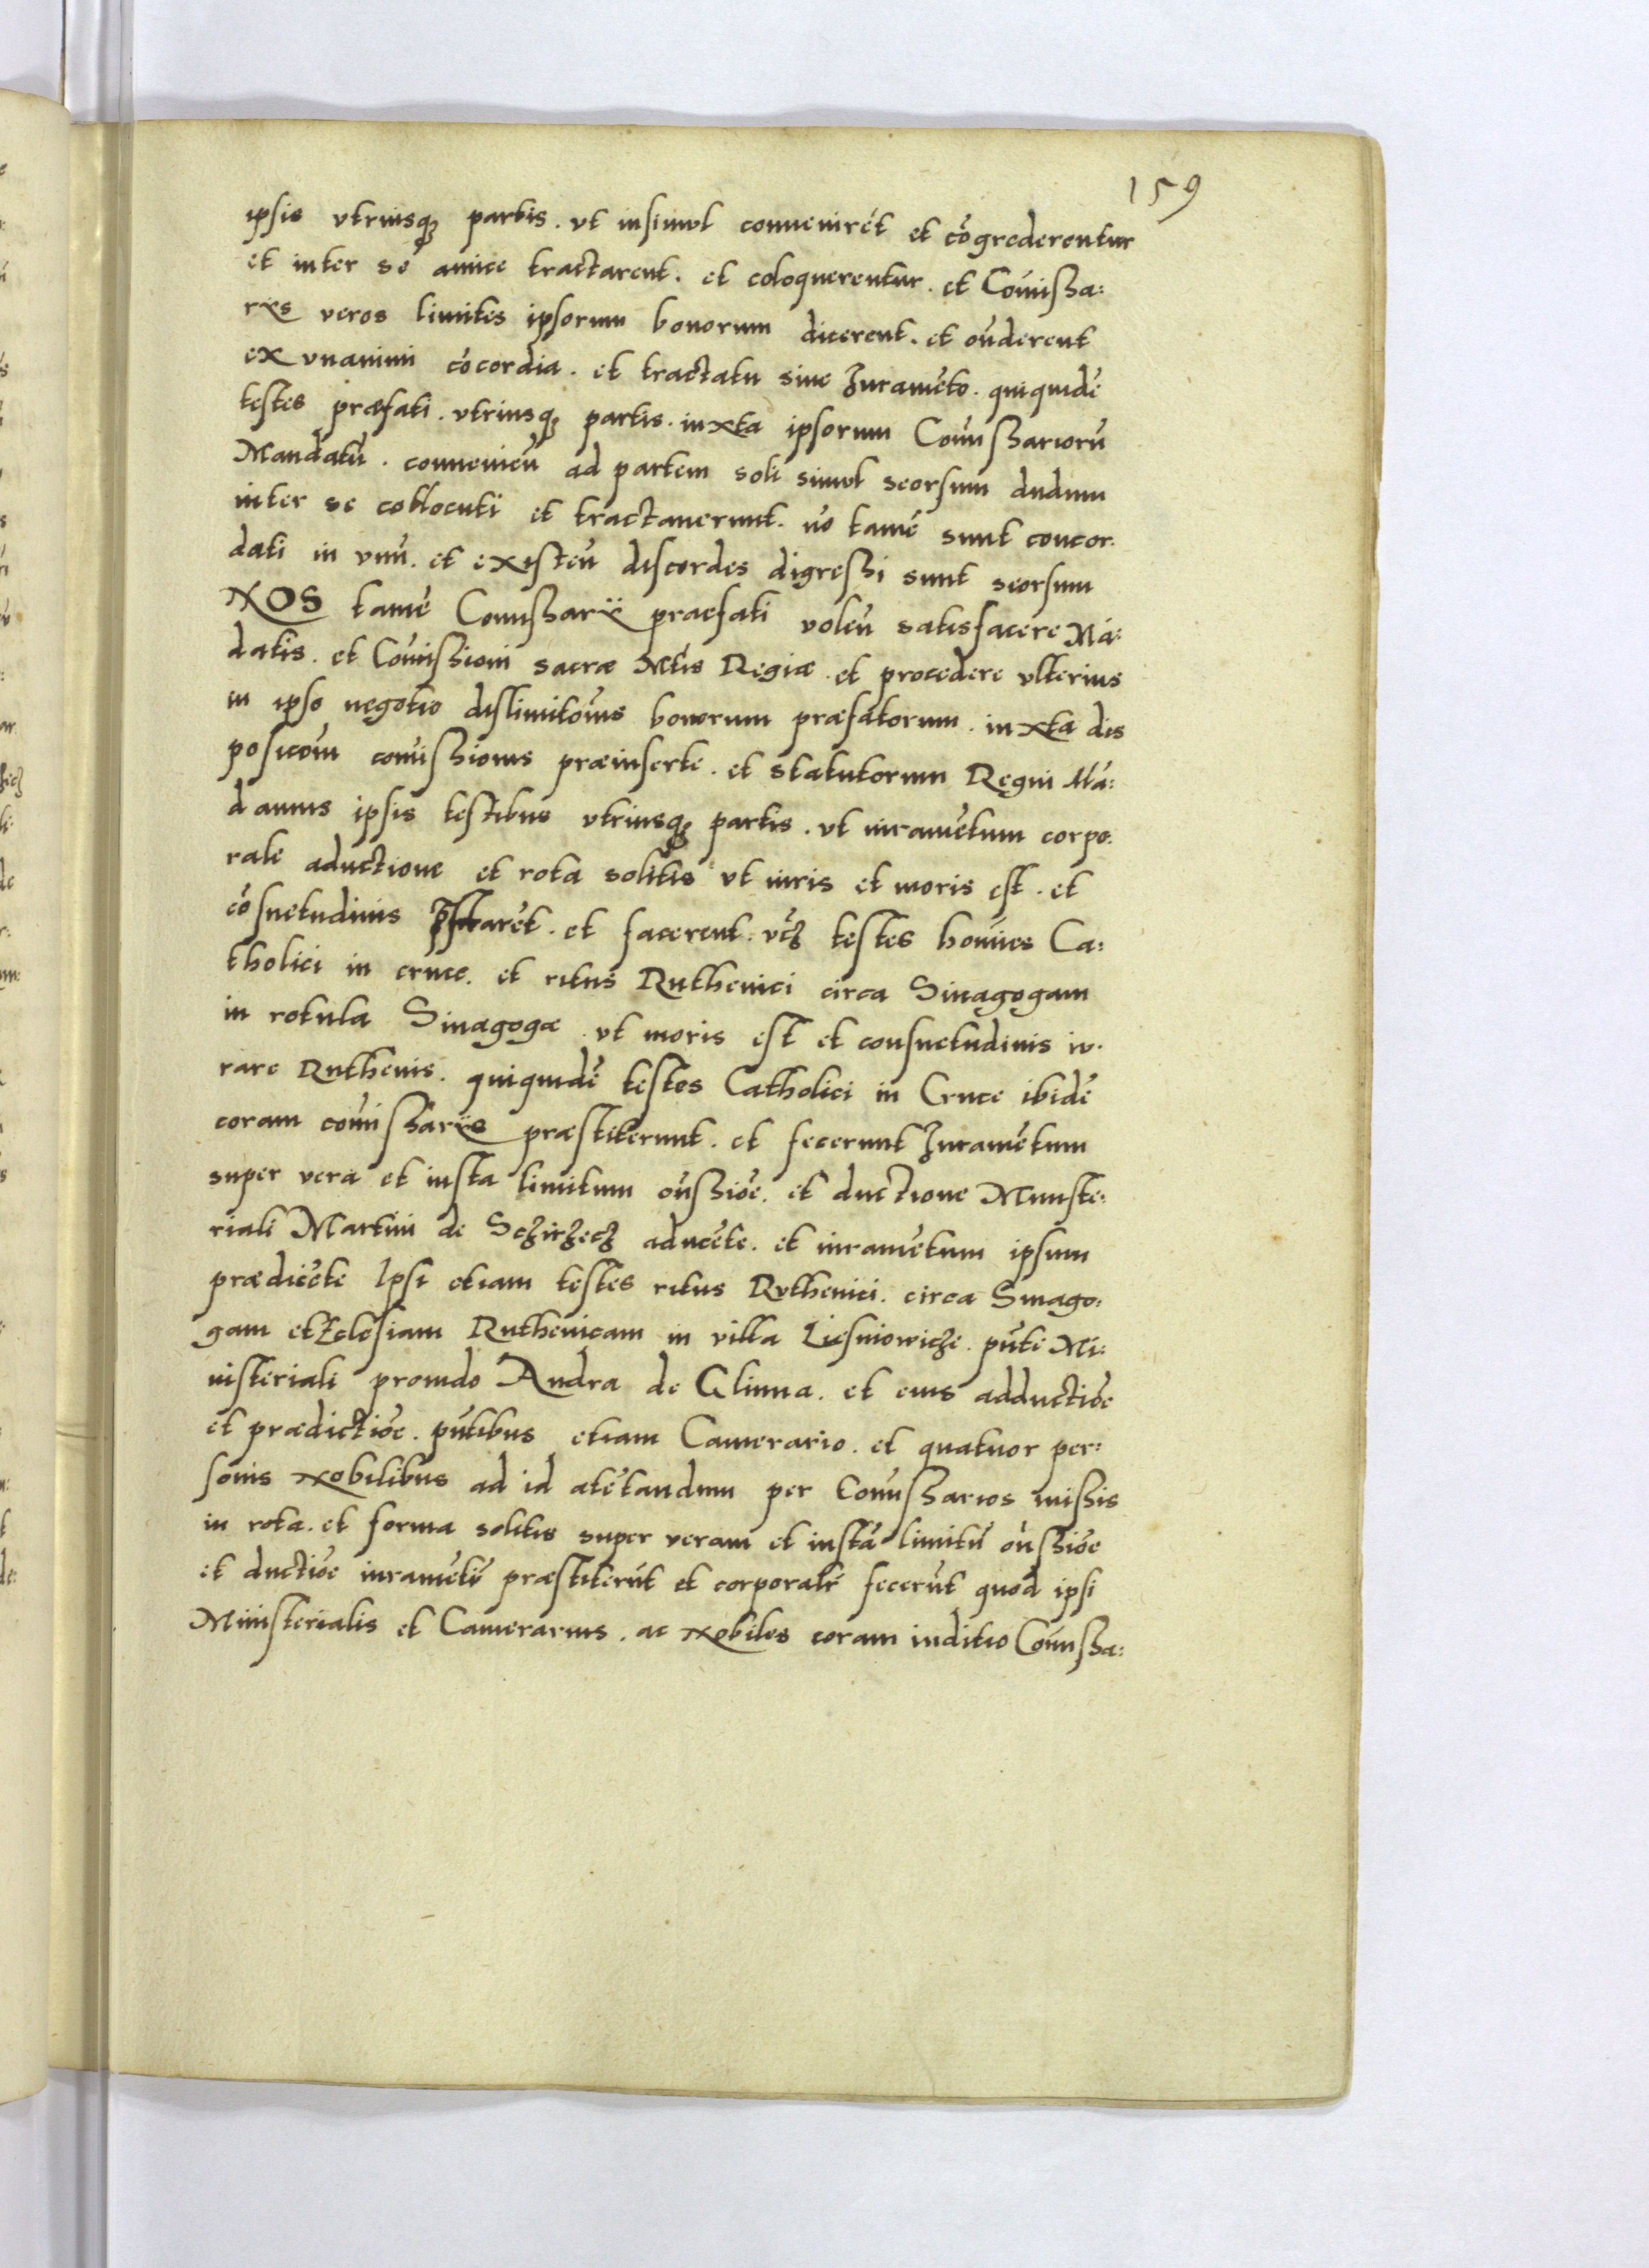 159
ipsis vtriusq₃ partis. vt insimul conuenirēt et cōgrederentur
et inter se amice tractarent. et coloquerentur. et Com̄issa:
rys veros limites ipsorum bonorum dicerent. et oūderent
ex vnanimi cōcordia. et tractatu sine Juramēto. quiquidē
testes præfati. vtriusq₃ partis. iuxta ipsorum Com̄issarioru̅
Mandatū. conuenieū ad partem soli simul seorsum dudum
inter se collocuti et tractauerunt. nō tamē sunt concor.
dati in vnū. et existeū discordes digressi sunt seorsum
NOS tamē Com̄issarÿ praefati voleū satisfacere Mā:
datis. et Com̄issioni sacræ Mtis Regiæ. et procedere vlterius
in ipso negotio dislimitoīus bonorum præfatorum. iuxta dis
positoīu com̄issionis præinserte. et statutorum Regni Mā:
damus ipsis testibus vtriusq₃ partis. vt iuramētum corpo.
rale aductione et rota solitis vt iuris et moris est. et
cōsuetudinis p̄starēt. et facerent. vc₃ testes hoīnies Ca:
tholici in cruce. et ritus Ruthenici circa Sinagogam
in rotula Sinagogæ. vt moris est et consuetudinis iu.
rare Ruthenis. quiquidē testes Catholici in Cruce ibidē
coram com̄issarÿs præstiterunt. et fecerunt Juramētum
super vera et iusta limitum oūssiōe. et ductione Ministe:
riali Martini de Sczirzecz aducēte. et iuramētum ipsum
prædicēte Ipsi etiam testes ritus Ruthenici. circa Sinago:
gam et Eclesiam Ruthenicam in villa Liesniowicze. pūte Mi:
nisteriali prouido Andra de Glinna. et eius adductiōe
et prædictiōe. pūtibus etiam Camerario. et quatuor per:
sonis Nobilibus ad id atētandum per Com̄issarios missis
in rota. et forma solitis super veram et iustā limitū oūssiōe
et ductiōe iuramētū præstiterūt et corporalr̄ fecerūt quod ipsi
Ministerialis et Camerarius. ac Nobiles coram iuditio Com̄issa: